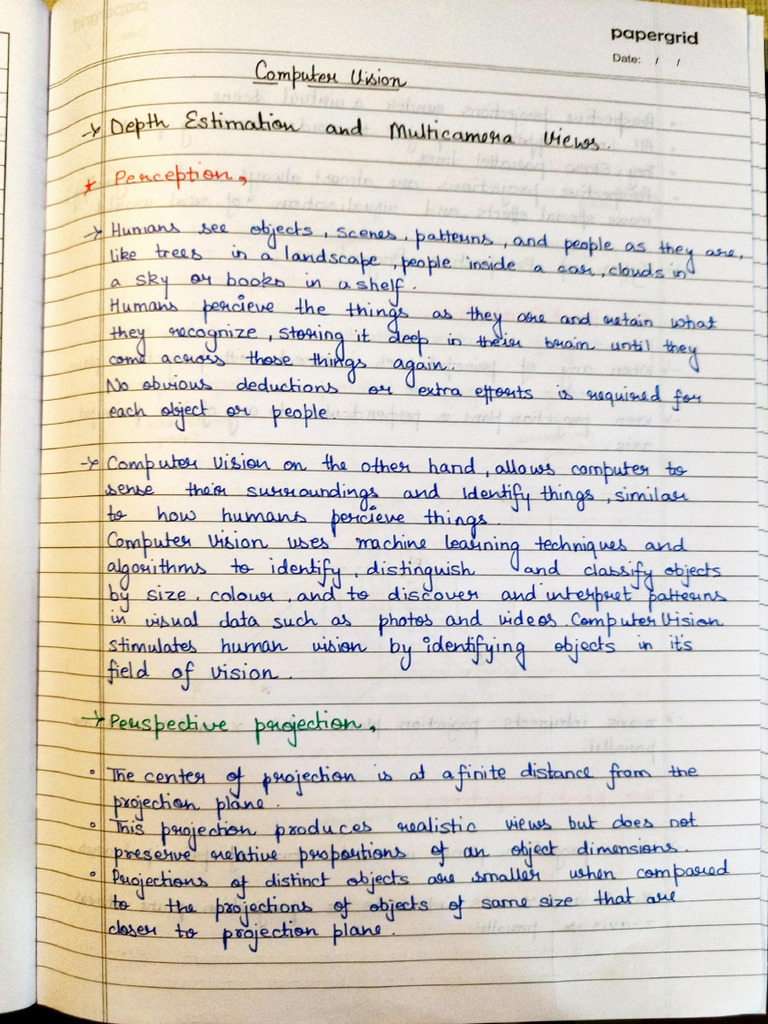 papergrid
Date: / /
Computer Vision
→ Depth Estimation and Multicamera Views.
* Perception,
→ Humans see objects, scenes, patterns, and people as they are,
like trees in a landscape, people inside a car, clouds in
a sky or books in a shelf.
Humans percieve the things as they are and retain what
they recognize, storing it deep in their brain until they
come across those things again.
No obvious deductions or extra efforts is required for
each object or people.
→ Computer Vision on the other hand, allows computer to
sense their surroundings and identify things, similar
to how humans percieve things.
Computer Vision uses machine learning techniques and
algorithms to identify, distinguish and classify objects
by size, colour, and to discover and interpret patterns
in visual data such as photos and videos. Computer Vision
stimulates human vision by identifying objects in it's
field of vision.
→ Perspective projection,
• The center of projection is at a finite distance from the
projection plane.
• This projection produces realistic views but does not
preserve relative proportions of an object dimensions.
• Projections of distinct objects are smaller when compared
to the projections of objects of same size that are
closer to projection plane.